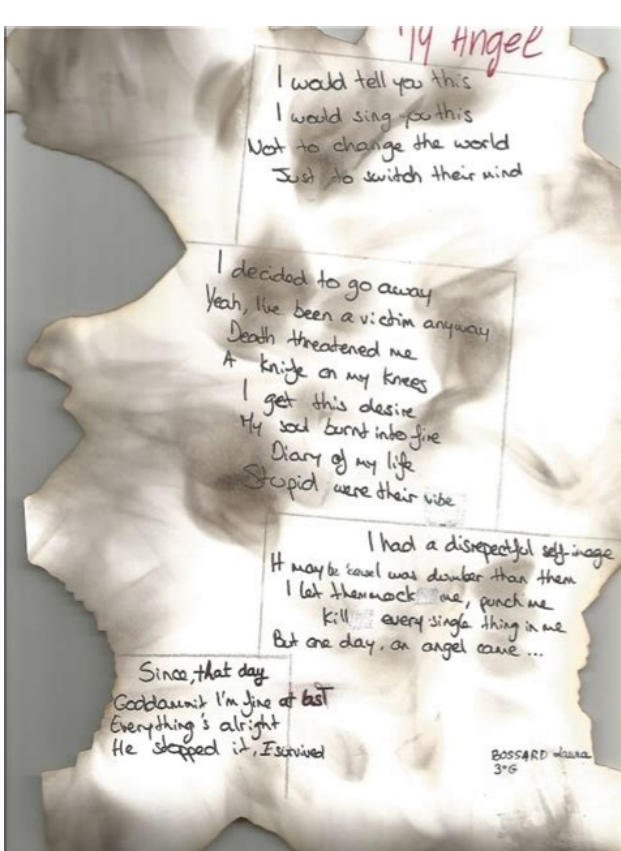 My Angel
I would tell you this
I would sing you this
Not to change the world
Just to switch their mind
I decided to go away
Yeah, I've been a victim anyway
Death threatened me
A knife on my knees
I get this desire
My soul burnt into fire
Diary of my life
Stupid were their vibe
I had a disrepectful self-image
It may be 'cause I was dumber than them
I let them mock me, punch me
Kill every single thing in me
But one day, an angel came ...
Since, that day
Goddammit I'm fine at last
Everything's alright
He stopped it, I survived
BOSSARD Laura
3°G